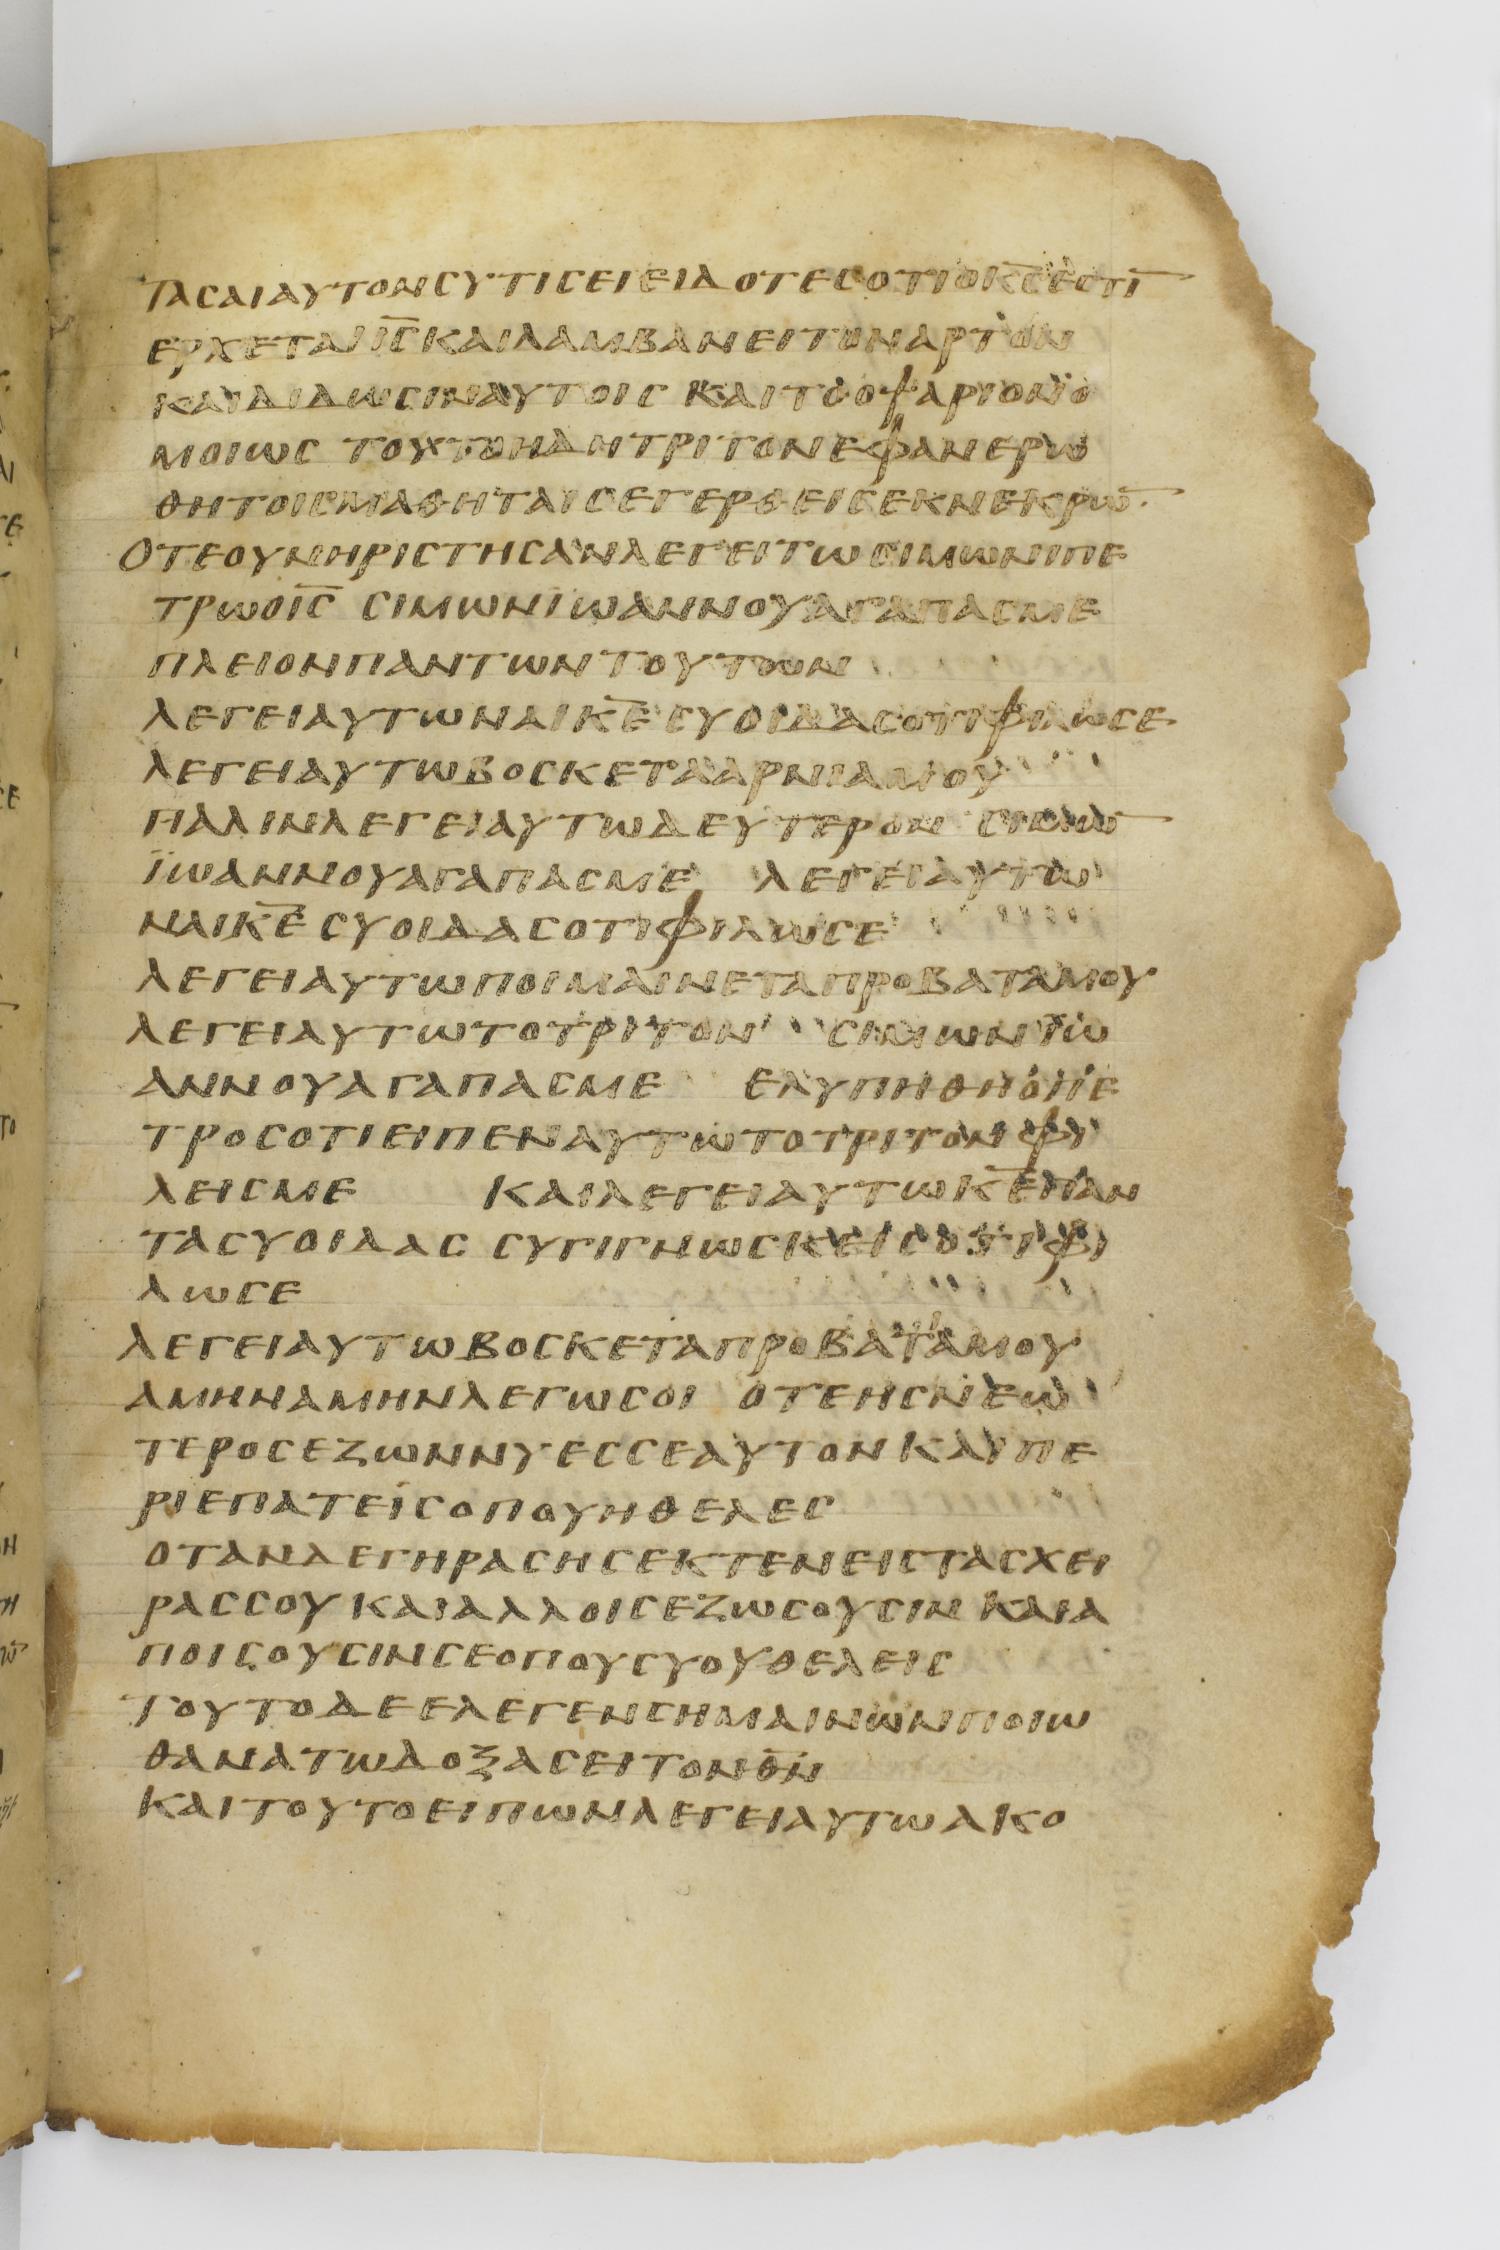 ΤΑΣΑΙΑΥΤΟΝΣΥΤΙΣΕΙΕΙΔΟΤΕΣΟΤΙΟΚ̅Σ̅ΕΣΤΙ̅
ΕΡΧΕΤΑΙΙ̅Σ̅ΚΑΙΛΑΜΒΑΝΕΙΤΟΝΑΡΤΟΝ
ΚΑΙΔΙΔΩΣΙΝΑΥΤΟΙΣ ΚΑΙΤΟΟΨΑΡΙΟΝΟ
ΜΟΙΩΣ ΤΟΥΤΟΗΔΗΤΡΙΤΟΝΕΦΑΝΕΡΩ
ΘΗΤΟΙΣΜΑΘΗΤΑΙΣΕΓΕΡΘΕΙΣΕΚΝΕΚΡΩ̅
ΟΤΕΟΥΝΗΡΙΣΤΗΣΑΝΛΕΓΕΙΤΩΣΙΜΩΝΙΠΕ
ΤΡΩΟΙ̅Σ̅ ΣΙΜΩΝΪΩΑΝΝΟΥΑΓΑΠΑΣΜΕ
ΠΛΕΙΟΝΠΑΝΤΩΝΤΟΥΤΩΝ
ΛΕΓΕΙΑΥΤΩΝΑΙΚ̅Ε̅ ΣΥΟΙΔΑΣΟΤΙΦΙΛΩΣΕ
ΛΕΓΕΙΑΥΤΩΒΟΣΚΕΤΑΑΡΝΙΑΜΟΥ
ΠΑΛΙΝΛΕΓΕΙΑΥΤΩΔΕΥΤΕΡΟΝ ΣΙΜΩ̅
ΪΩΑΝΝΟΥΑΓΑΠΑΣΜΕ ΛΕΓΕΙΑΥΤΩ
ΝΑΙΚ̅Ε̅ ΣΥΟΙΔΑΣΟΤΙΦΙΛΩΣΕ
ΛΕΓΕΙΑΥΤΩΠΟΙΜΑΙΝΕΤΑΠΡΟΒΑΤΑΜΟΥ
ΛΕΓΕΙΑΥΤΩΤΟΤΡΙΤΟΝ ΣΙΜΩΝΪΩ
ΑΝΝΟΥΑΓΑΠΑΣΜΕ ΕΛΥΠΗΘΗΟΠΕ
ΤΡΟΣΟΤΙΕΙΠΕΝΑΥΤΩΤΟΤΡΙΤΟΝΦΙ
ΛΕΙΣΜΕ ΚΑΙΛΕΓΕΙΑΥΤΩΚ̅Ε̅ΠΑΝ
ΤΑΣΥΟΙΔΑΣ ΣΥΓΙΓΝΩΣΚΕΙΣΟΤΙΦΙ
ΛΩΣΕ
ΛΕΓΕΙΑΥΤΩΒΟΣΚΕΤΑΠΡΟΒΑΤΑΜΟΥ
ΑΜΗΝΑΜΗΝΛΕΓΩΣΟΙ ΟΤΕΗΣΝΕΩ
ΤΕΡΟΣΕΖΩΝΝΥΕΣΣΕΑΥΤΟΝΚΑΙΠΕ
ΡΙΕΠΑΤΕΙΣΟΠΟΥΗΘΕΛΕΣ
ΟΤΑΝΔΕΓΗΡΑΣΗΣΕΚΤΕΝΕΙΣΤΑΣΧΕΙ
ΡΑΣΣΟΥΚΑΙΑΛΛΟΙΣΕΖΩΣΟΥΣΙΝΚΑΙΑ
ΠΟΙΣΟΥΣΙΝΣΕΟΠΟΥΣΥΟΥΘΕΛΕΙΣ
ΤΟΥΤΟΔΕΕΛΕΓΕΝΣΗΜΑΙΝΩΝΠΟΙΩ
ΘΑΝΑΤΩΔΟΞΑΣΕΙΤΟΝΘ̅Ν̅
ΚΑΙΤΟΥΤΟΕΙΠΩΝΛΕΓΕΙΑΥΤΩΑΚΟ